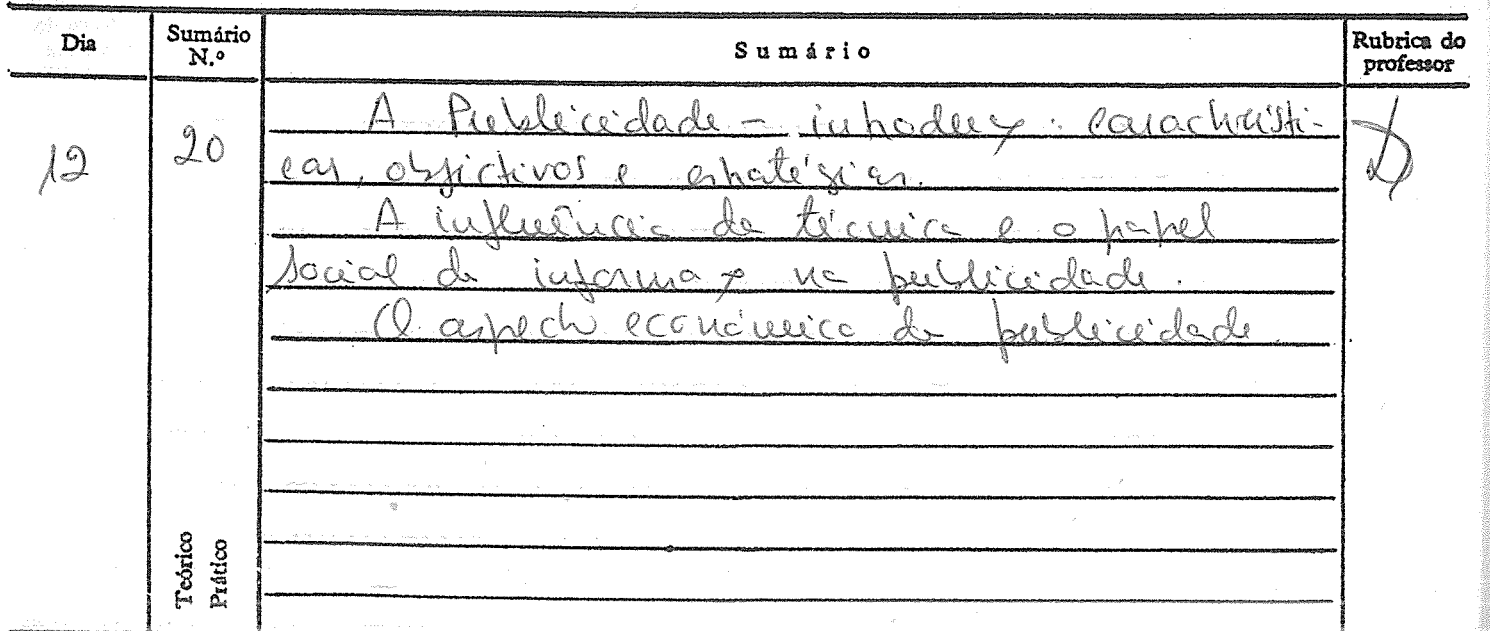 Dia
Sumário N.º
Sumário
Rubrica do professor
12
20
A Publicidade - introdução: característi-
cas, objectivos e estratégias.
A influência da técnica e o papel
social da informação na publicidade.
O aspecto económico da publicidade.
Teórico
Prático